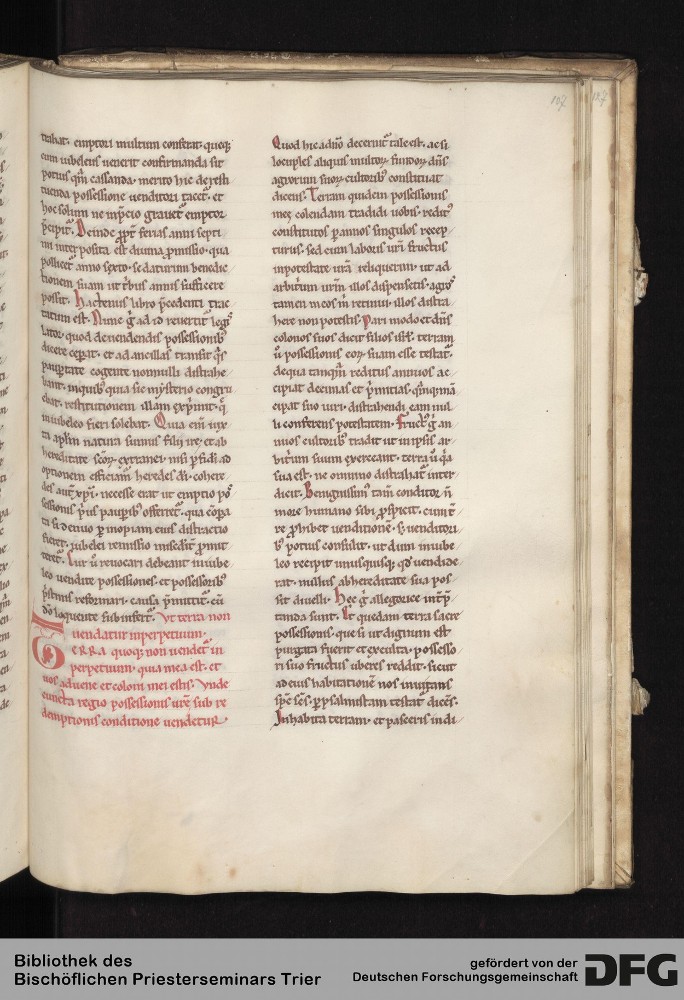 107
trahat. emptori multum conferat. queq;
cum iubeleus uenerit confirmanda sit
potius qm̄ cassanda. merito hic de resti
tuenda possessione uenditori tacet᷑. et
hoc solum ne in p̄cio grauet᷑ emptor
p̄cipit᷑. Deinde ꝓpt̄ ferias anni septi
mi interposita est diuina ꝓmissio. qua
pollicet᷑ anno sexto. se daturum benedic
tionem suam ut tribus annis sufficere
possit. Hactenus libro p̄cedenti trac
tatum est. Nunc g̊ ad id reuertit᷑ legis
lator. quod de uendendis possessionib;
dicere ceperat. et ad ancillas transit q̄s
paup̱tate cogente nonnulli distrahe
bant. in quib; quia sic mysterio congru
ebat. restitutionem illam exp̄mit. q̄
in iubeleo fieri solebat. Quia enī iux
ta aplm̄ natura sumus filii ire. et ab
hereditate scōꝝ extranei. nisi p̱ fidē ad
optionem efficiam᷑ heredes dī. cohere
des aut̄ xp̄i. necesse erat ut emptio pos
sessionis p̄us paup̱ib; offerret᷑. qua cōpa
ta si denuo p̱ inopiam eius distractio
fieret. iubelei remissio
teret᷑. Cur u̅ reuocari debeant in iube
leo uendite possessiones. et possessorib;
p̄stinis reformari. causa p̄mittit᷑. cū
dn̄o loquente subinfert᷑. Vt terra non
uendatur in perpetuum.
TERRA quoq; non uendet᷑ in
perpetuum. quia mea est. et
uos aduene et coloni mei estis. Vnde
cuncta regio possessionis urē sub re
demptionis conditione uendetur.
Quod hic a dn̄o decernit᷑ tale est. ac si
locuples aliquis multoꝝ fundoꝝ dn̄s
agroꝝum suoꝝ cultorib; constituat
dicens. Terram quidem possessionis
meę colendam tradidi uobis. reditus
constitutos p̱ annos singulos recep
turus. sed eam laboris urī fructus
in potestate urā reliquerim. ut ad
arbitrium urm̄ illos dispensetis. agros
tamen meos m̄ retinui. illos distra
here non potestis. Pari modo et dn̄s
colonos suos dicit filios isrl̄. terram
u̅ possessionis eoꝝ suam esse testat᷑.
de qua tanqm̄ reditus annuos ac
cipiat decimas et p̄mitias. qm̄q;
cipat suo iuri. distrahendi eam nul
li conferens potestatem. Fructus g̊ an
nuos cultorib; tradit ut in ipsis ar
bitrium suum exerceant. terra u̅ q̄a
sua est. ne omnino distrahat᷑ inter
dicit. Benignissimus tam̄ conditor n̄
more humano sibi ꝓspicit. cum t̄
re ꝓhibet uenditionē. s; uenditori
b; potius consulit. ut dum in iube
leo recipit unusquisq; qd̄ uendide
rat. nullus ab hereditate sua pos
sit diuelli. Hec g̊ allegorice int̄p̄
tanda sunt. Est quedam terra sacre
possessionis. que si ut dignum est
purgata fuerit et exculta. possesso
ri suo fructus uberes reddit. sicut
ad eius habitationē nos inuitans
sp̄c sc̄s. p̱ psalmistam testat᷑ dicēs.
Inhabita terram. et pasceris in di
Bibliothek des
Bischöflichen Priesterseminars Trier
gefördert von der
Deutschen Forschungsgemeinschaft
DFG